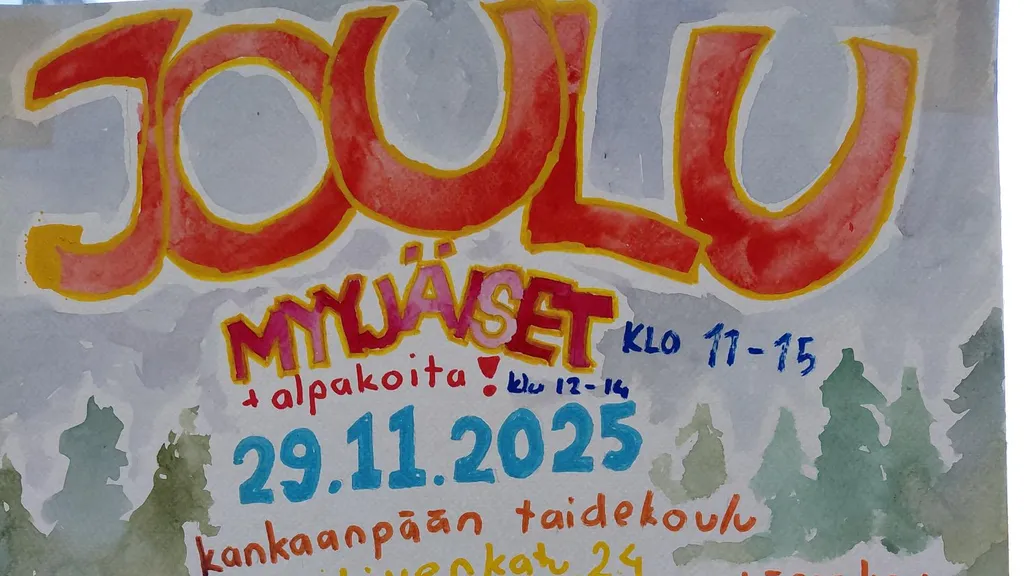 JOULU
MYYJÄISET KLO 11-15
+ alpakoita! klo 12-14
29.11.2025
kankaanpään taidekoulu
24